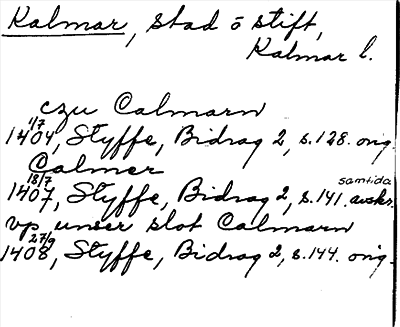 Kalmar, stad o stift,
Kalmar l.
czu Calmarn
1404 1/7, Styffe, Bidrag 2, s. 128. orig.
Calmer
1407 18/7, Styffe, Bidrag 2, s. 141. samtida avskr.
vp unser slot Calmarn
1408 27/9, Styffe, Bidrag 2, s. 144. orig.